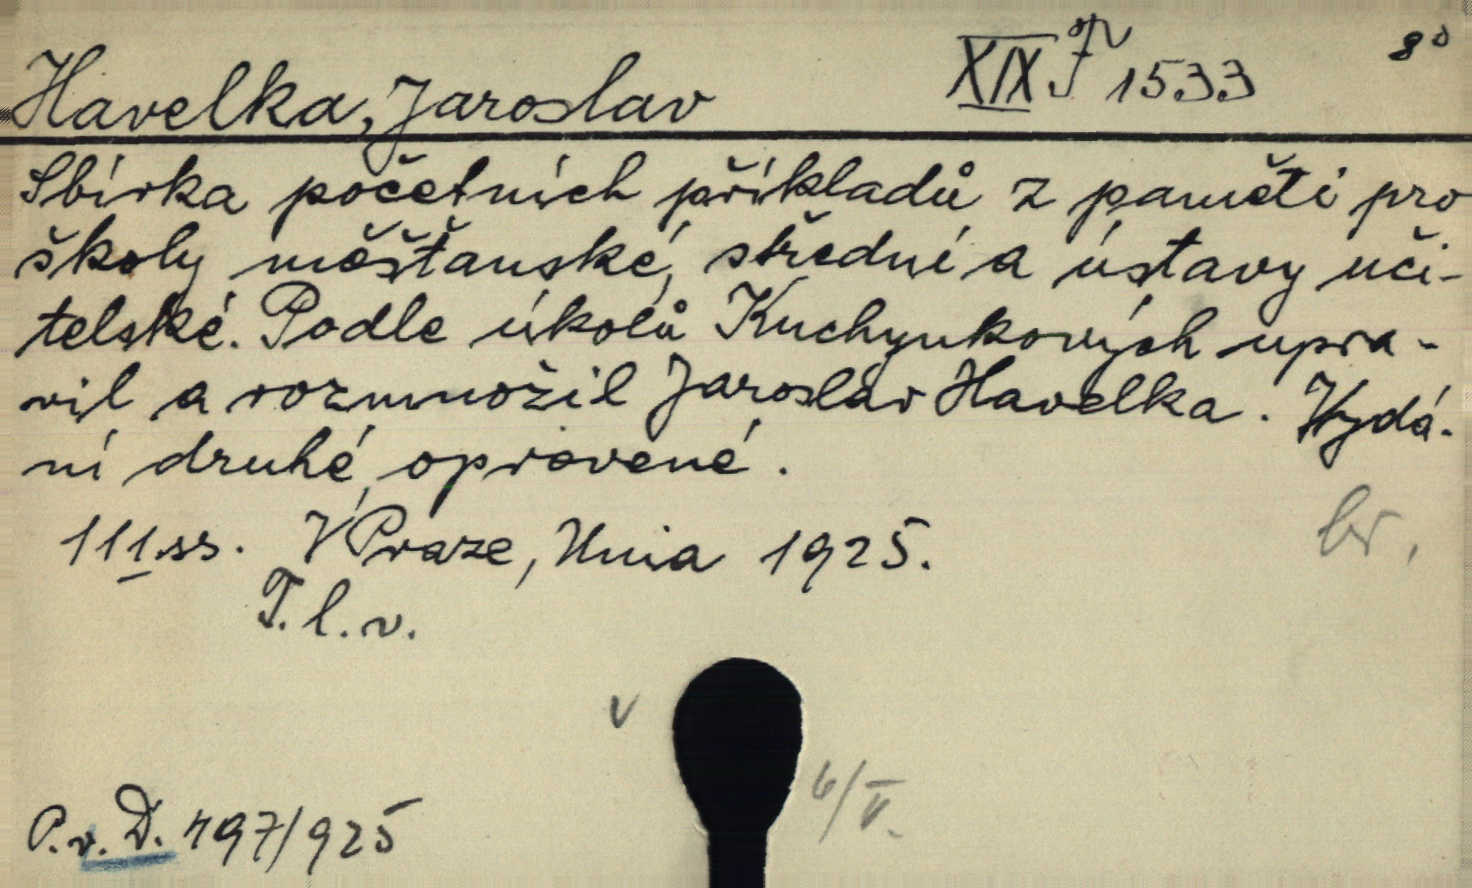 Havelka, Jaroslav XIX J 1533 8°
Sbírka početních příkladů z paměti pro
školy měšťanské, střední a ústavy uči-
telské. Podle úkolů Kuchynkových upra-
vil a rozmnožil Jaroslav Havelka. Vydá-
ní druhé, opravené.
111 ss. V Praze, Unia 1925. br.
T. l. v.
v
6/V.
P. v. D. 497/925